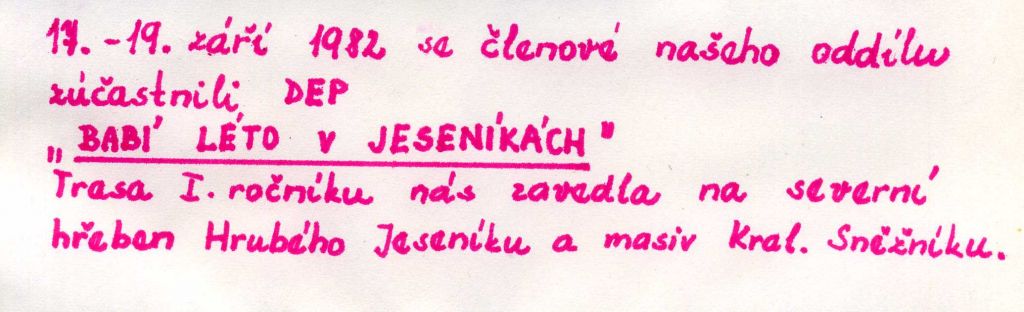 17. - 19. září 1982 se členové našeho oddílu
zúčastnili DEP
„BABÍ LÉTO v JESENÍKÁCH"
Trasa I. ročníku nás zavedla na severní
hřeben Hrubého Jeseníku a masiv Kral. Sněžníku.